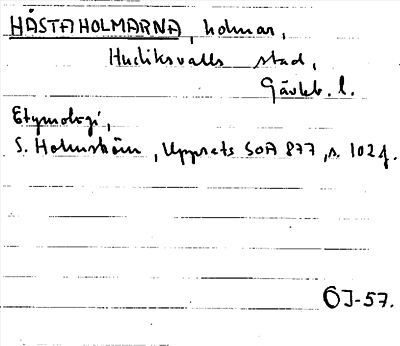 HÅSTAHOLMARNA, holmar,
Hudiksvalls stad,
Gävleb. l.
Etymologi,
S. Holmström, Uppsats SOA 877, s. 102 f.
ÖJ-57.